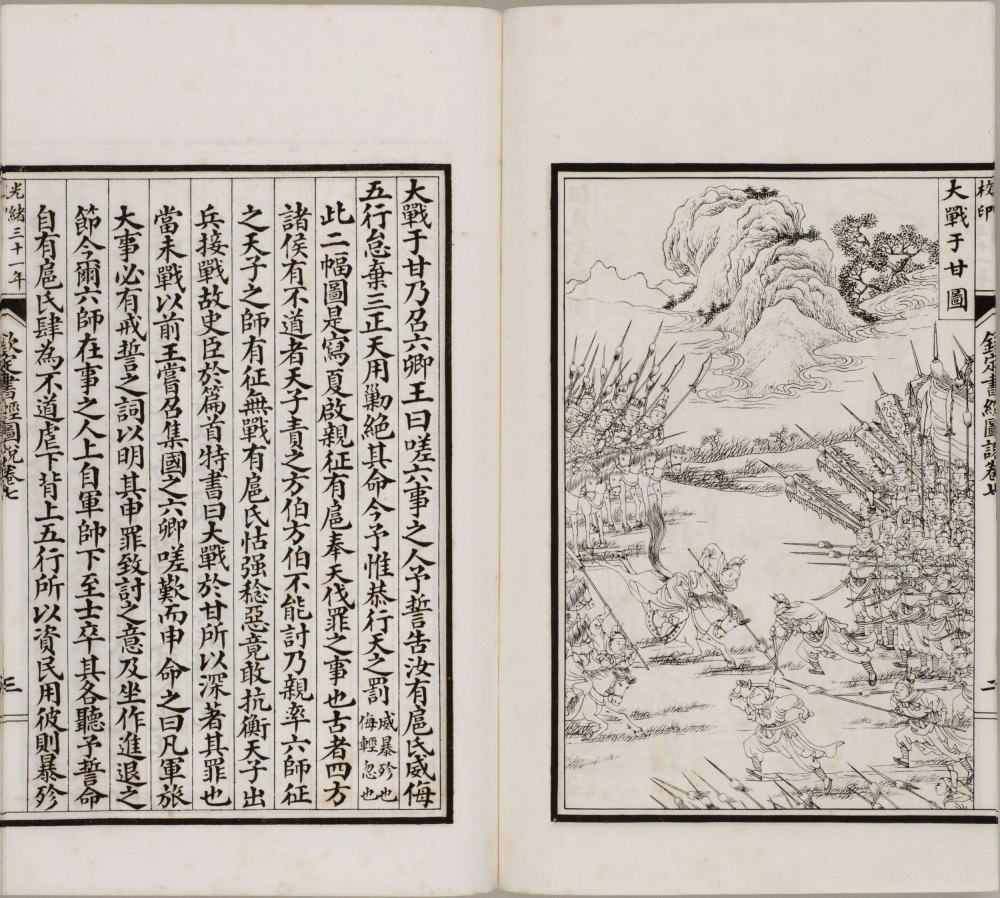 校印
欽定書經圖說卷七
二
大戰于甘圖
大戰于甘乃召六卿王曰嗟六事之人予誓告汝有扈氏威侮
五行怠棄三正天用勦絕其命今予惟恭行天之罰威暴殄也侮輕忽也
此二幅圖是寫夏啟親征有扈奉天伐罪之事也古者四方
諸侯有不道者天子責之方伯方伯不能討乃親率六師征
之天子之師有征無戰有扈氏怙强稔惡竟敢抗衡天子出
兵接戰故史臣於篇首特書曰大戰於甘所以深著其罪也
當未戰以前王嘗召集國之六卿嗟歎而申命之曰凡軍旅
大事必有戒誓之詞以明其申罪致討之意及坐作進退之
節今爾六師在事之人上自軍帥下至士卒其各聽予誓命
自有扈氏肆為不道虐下背上五行所以資民用彼則暴殄
光緒三十一年
欽定書經圖說卷七
三